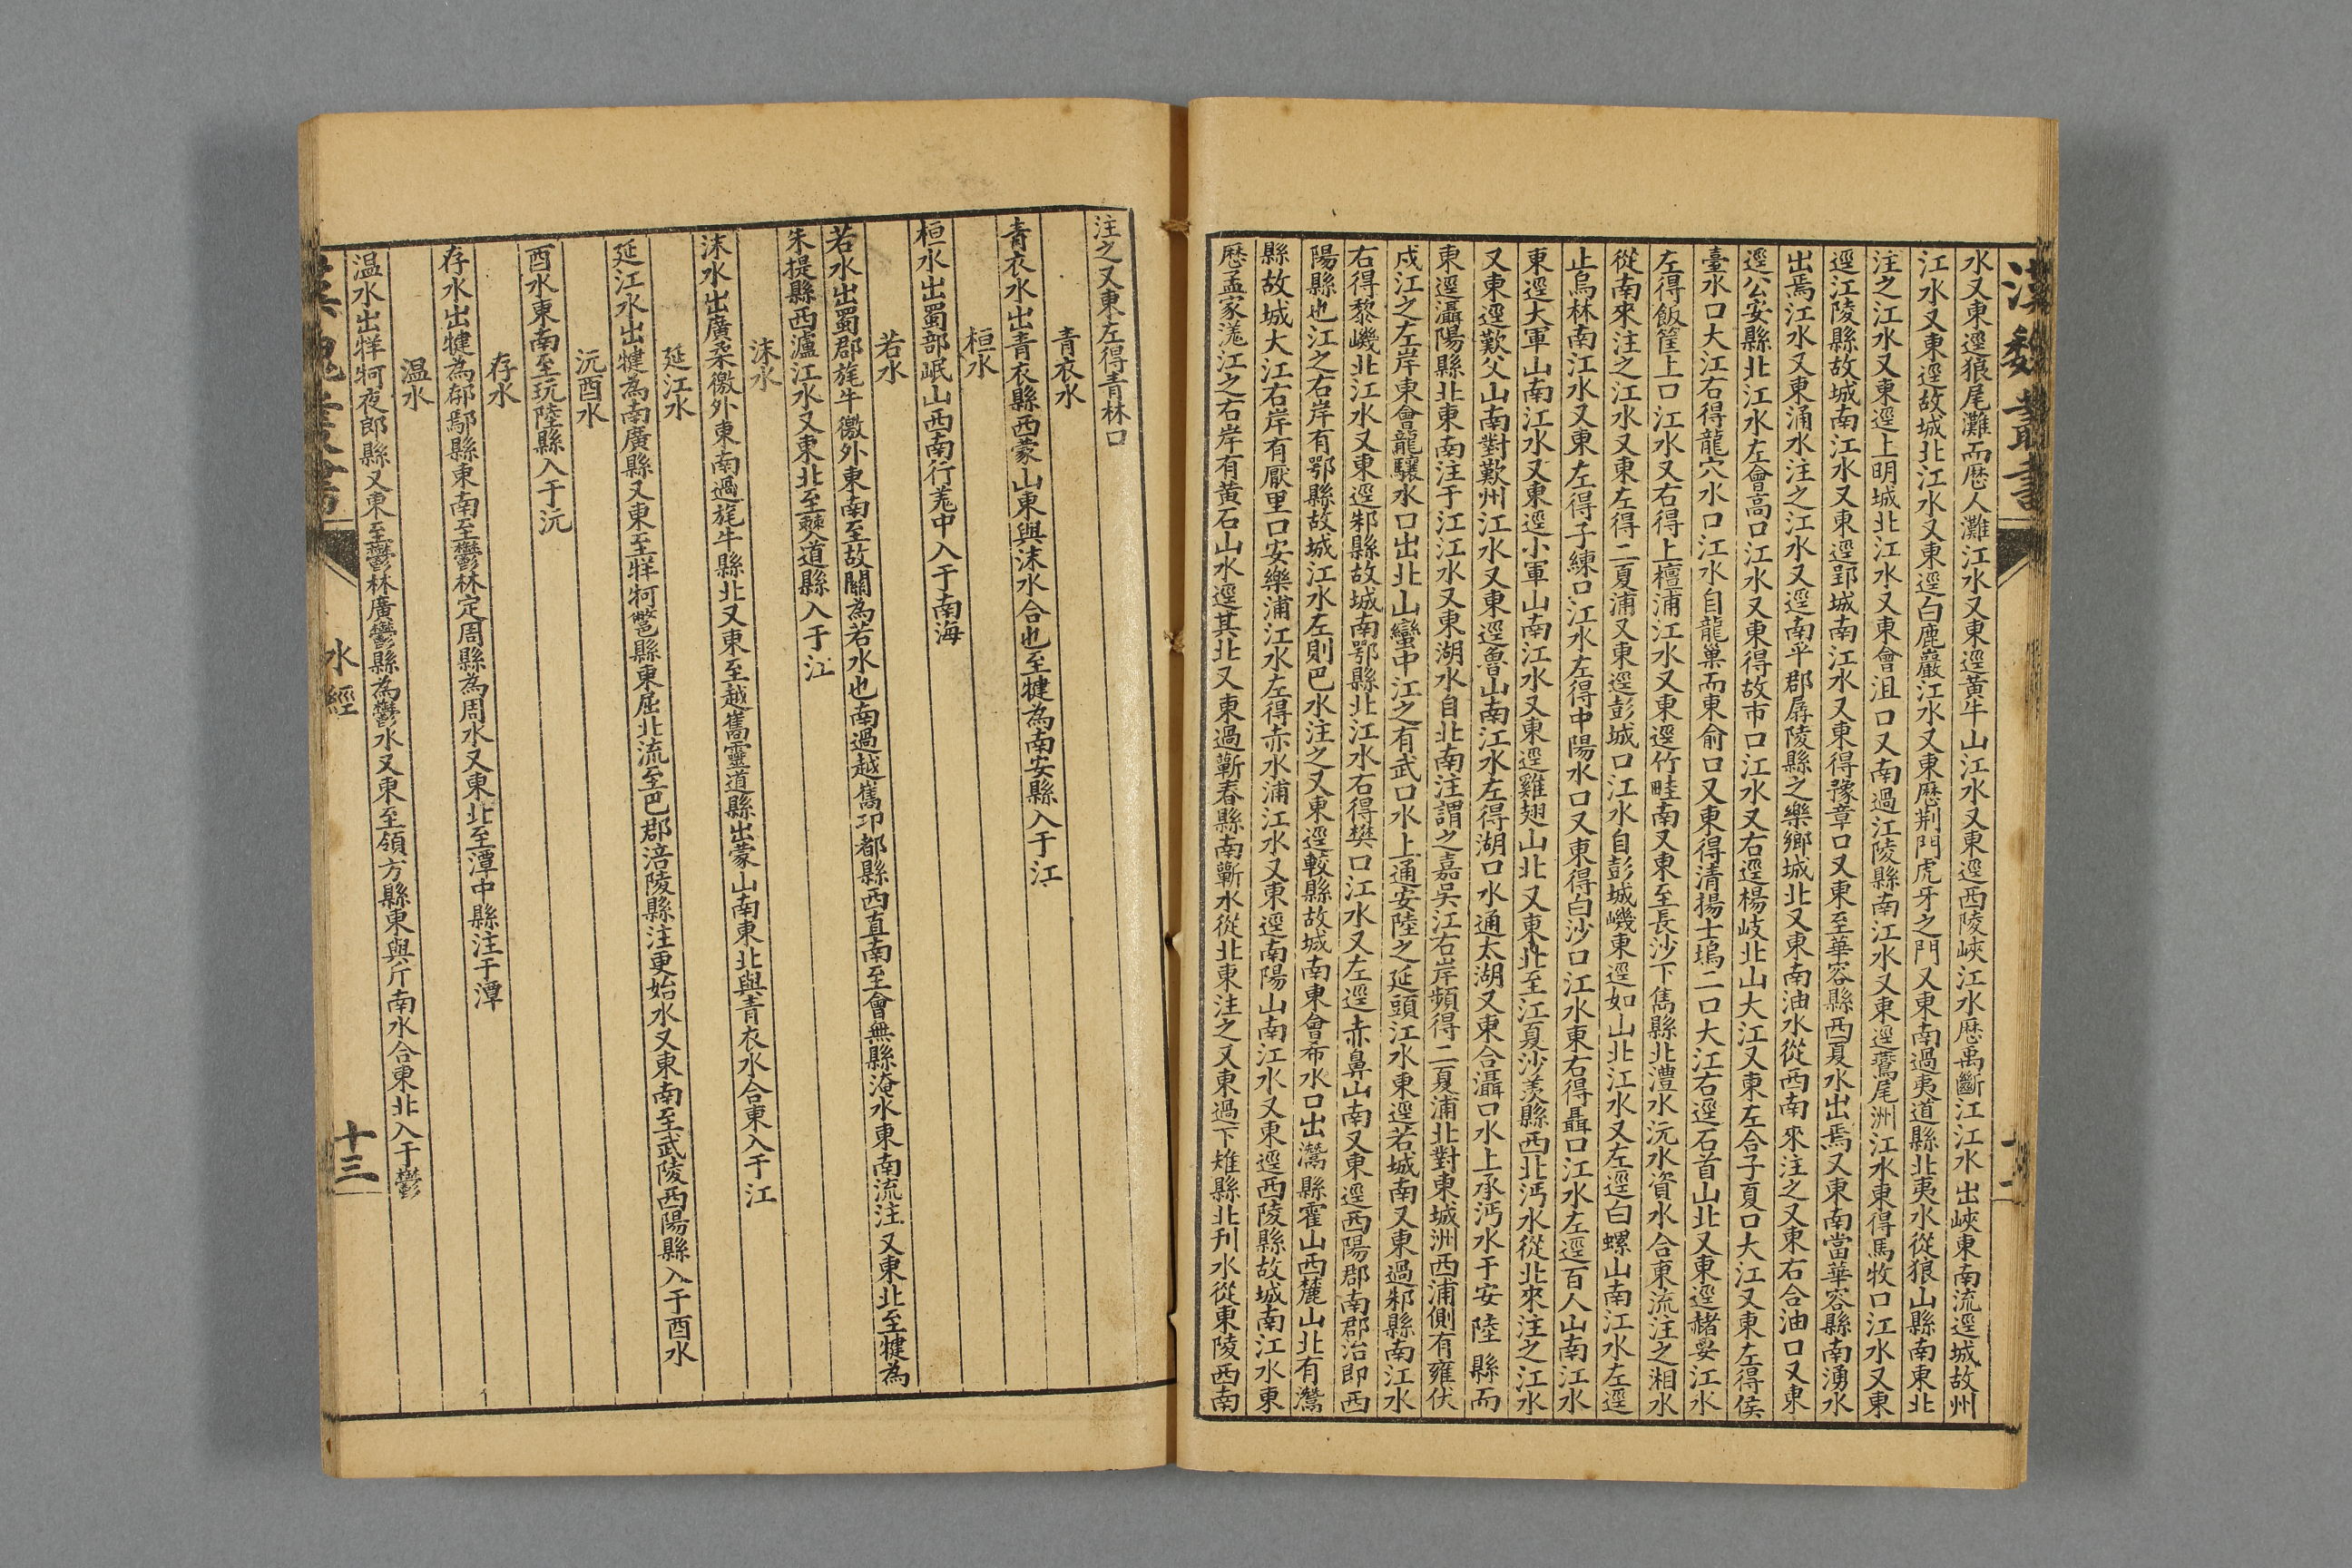 漢魏叢書
水又東逕狼尾灘而歷人灘江水又東逕黃牛山江水又東逕西陵峽江水歷禹斷江江水出峽東南流逕城故州
江水又東逕故城北江水又東逕白鹿巖江水又東歷荆門虎牙之門又東南過夷道縣北夷水從狼山縣南東北
注之江水又東逕上明城北江水又東會沮口又南過江陵縣南江水又東逕鷰尾洲江水東得馬牧口江水又東
逕江陵縣故城南江水又東逕郢城南江水又東得豫章口又東至華容縣西夏水出焉又東南當華容縣南湧水
出焉江水又東涌水注之江水又逕南平郡孱陵縣之樂鄉城北又東南油水從西南來注之又東右合油口又東
逕公安縣北江水左會高口江水又東得故市口江水又右逕楊岐北山大江又東左合子夏口大江又東左得侯
臺水口大江右得龍穴水口江水自龍巢而東俞口又東得清揚土塢二口大江右逕石首山北又東逕赭要江水
左得飯筐上口江水又右得上檀浦江水又東逕竹畦南又東至長沙下雋縣北澧水沅水資水合東流注之湘水
從南來注之江水又東左得二夏浦又東逕彭城口江水自彭城磯東逕如山北江水又左逕白螺山南江水左逕
止烏林南江水又東左得子練口江水左得中陽水口又東得白沙口江水東右得聶口江水左逕百人山南江水
東逕大軍山南江水又東逕小軍山南江水又東逕雞翅山北又東北至江夏沙羨縣西北沔水從北來注之江水
又東逕歎父山南對歎州江水又東逕魯山南江水左得湖口水通太湖又東合灄口水上承沔水于安陸縣而
東逕灄陽縣北東南注于江江水又東湖水自北南注謂之嘉吳江右岸頻得二夏浦北對東城洲西浦側有雍伏
戍江之左岸東會龍驤水口出北山蠻中江之有武口水上通安陸之延頭江水東逕若城南又東過邾縣南江水
右得黎磯北江水又東逕邾縣故城南鄂縣北江水右得樊口江水又左逕赤鼻山南又東逕西陽郡南郡治即西
陽縣也江之右岸有鄂縣故城江水左則巴水注之又東逕軑縣故城南東會希水口出灊縣霍山西麓山北有灊
縣故城大江右岸有厭里口安樂浦江水左得赤水浦江水又東逕南陽山南江水又東逕西陵縣故城南江水東
歷孟家溠江之右岸有黃石山水逕其北又東過蘄春縣南蘄水從北東注之又東過下雉縣北刋水從東陵西南
注之又東左得青林口
青衣水
青衣水出青衣縣西蒙山東與沫水合也至犍為南安縣入于江
桓水
桓水出蜀部岷山西南行羌中入于南海
若水
若水出蜀郡旄牛徼外東南至故關為若水也南過越嶲卭都縣西直南至會無縣淹水東南流注又東北至犍為
朱提縣西瀘江水又東北至僰道縣入于江
沫水
沫水出廣柔徼外東南過旄牛縣北又東至越嶲靈道縣出蒙山南東北與青衣水合東入于江
延江水
延江水出犍為南廣縣又東至牂牁鷩縣東屈北流至巴郡涪陵縣注更始水又東南至武陵酉陽縣入于酉水
沅酉水
酉水東南至玩陸縣入于沅
存水
存水出犍為郁鄢縣東南至鬱林定周縣為周水又東北至潭中縣注于潭
温水
温水出牂牁夜郎縣又東至鬱林廣鬱縣為鬱水又東至領方縣東與斤南水合東北入于鬱
水經
十三